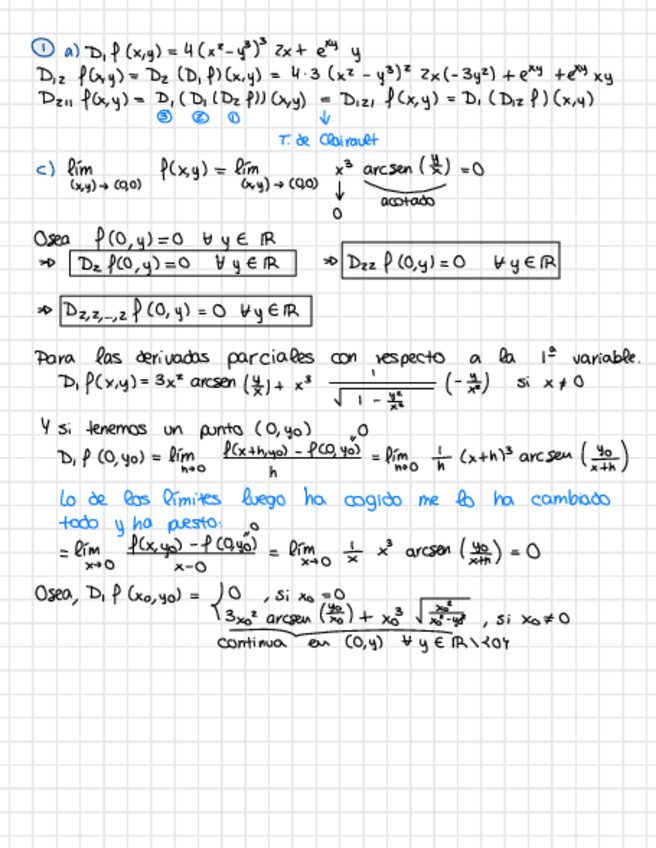 ① a) D₁ f(x,y) = 4(x²-y³)³ 2x + e^{xy} y
D₁₂ f(x,y) = D₂ (D₁ f)(x,y) = 4·3 (x² - y³)² 2x(-3y²) + e^{xy} + e^{xy} xy
D₂₁₁ f(x,y) = D₁ (D₁ (D₂ f)) (x,y) = D₁₂₁ f(x,y) = D₁ (D₁₂ f) (x,y)
③ ② ① ↓
T. de Clairault
c) lím_{(x,y)→(0,0)} f(x,y) = lím_{(x,y)→(0,0)} x³ arcsen (y/x) = 0
↓ acotado
0
Osea f(0,y) = 0 ∀ y ∈ ℝ
⇒ D₂ f(0,y) = 0 ∀ y ∈ ℝ ⇒ D₂₂ f(0,y) = 0 ∀ y ∈ ℝ
⇒ D₂,₂,...,₂ f(0,y) = 0 ∀ y ∈ ℝ
Para las derivadas parciales con respecto a la 1ª variable.
D₁ f(x,y) = 3x² arcsen (y/x) + x³ 1/√(1 - y²/x²) (-y/x²) si x ≠ 0
Y si tenemos un punto (0, y₀)
D₁ f (0, y₀) = lím_{h→0} (f(x+h, y₀) - f(0, y₀)^{"0})/h = lím_{h→0} 1/h (x+h)³ arcsen (y₀/(x+h))
Lo de los límites luego ha cogido me lo ha cambiado
todo y ha puesto:
= lím_{x→0} (f(x,y₀) - f(0,y₀)^{"0})/(x-0) = lím_{x→0} 1/x x³ arcsen (y₀/(x+h)) = 0
Osea, D₁ f (x₀, y₀) = { 0 , si x₀ = 0
3x₀² arcsen (y₀/x₀) + x₀³ √(x₀²/(x₀²-y₀²)) , si x₀ ≠ 0
continua en (0,y) ∀ y ∈ ℝ\{0}